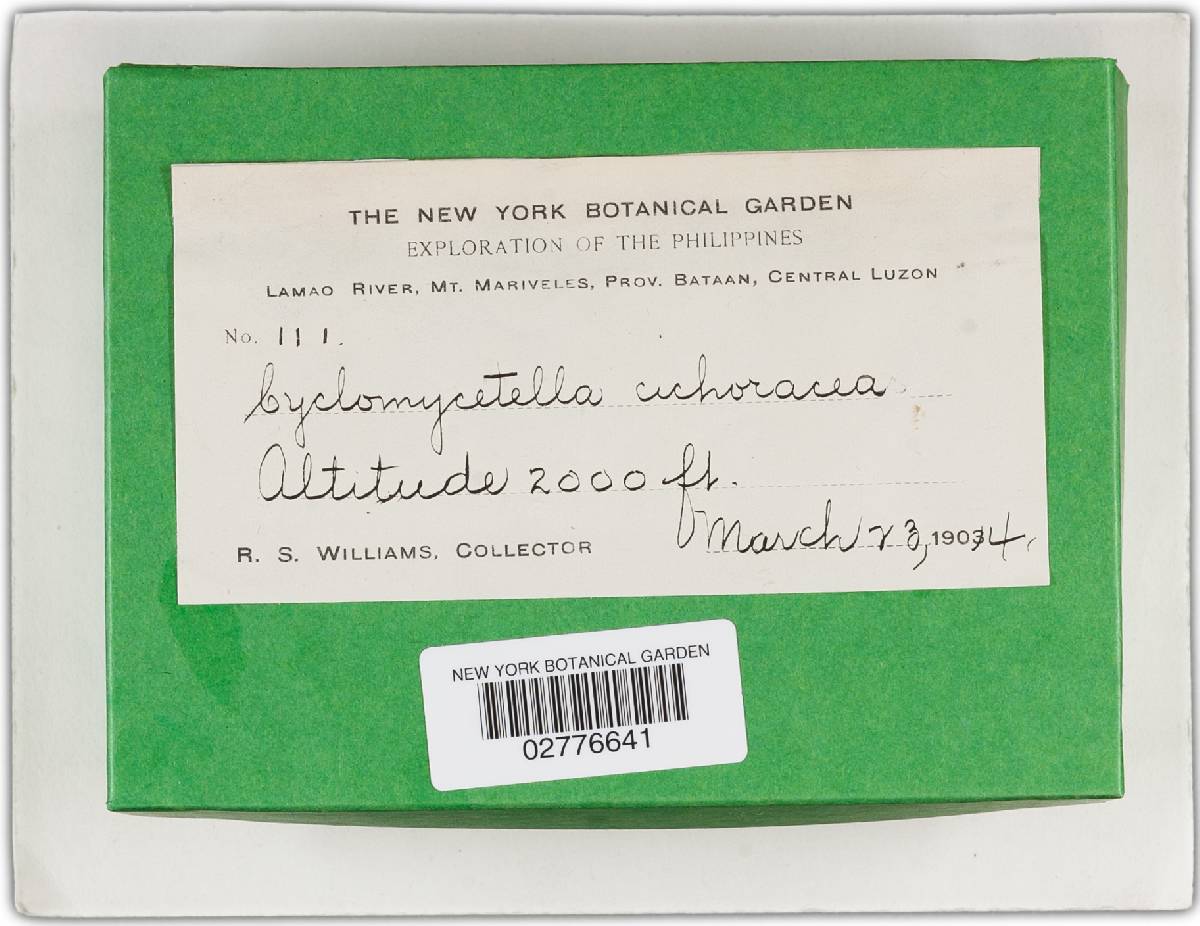 THE NEW YORK BOTANICAL GARDEN
EXPLORATION OF THE PHILIPPINES
LAMAO RIVER, MT. MARIVELES, PROV. BATAAN, CENTRAL LUZON
No. 111.
Cyclomycetella cichoracea
Altitude 2000 ft.
R. S. WILLIAMS, COLLECTOR March 23, 1904.
NEW YORK BOTANICAL GARDEN
02776641